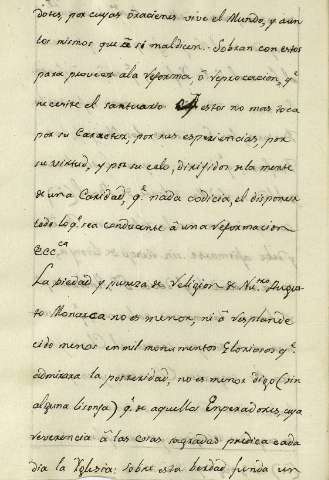 dotes, por cuyas oraciones vive el Mundo, y aun
los mismos que â sí maldicen. Sobran con estos
para proveer ala reforma ô reprocacion, q.^e
necesite el santuario estos no mas toca
por su Caracter, por sus esperiencias, por
su virtud, y por su celo, dirijidos de la mente
de una Caridad, q.^e nada codicia, el disponer
todo lo q.^e sea conducente â una reformacion
&ccc.^ca
La piedad y pureza de religion de Nu.^tro Augus-
to Monarca no es menor, ni â resplande
cido menos en mil monumentos Gloriosos q.^e
admirara la posteridad, no es menor digo (sin
alguna lisonja) q.^e de aquellos Enperadores, cuya
reverencia â las cosas sagradas predica cada
dia la Yglesia: sobre esta berdad funda un